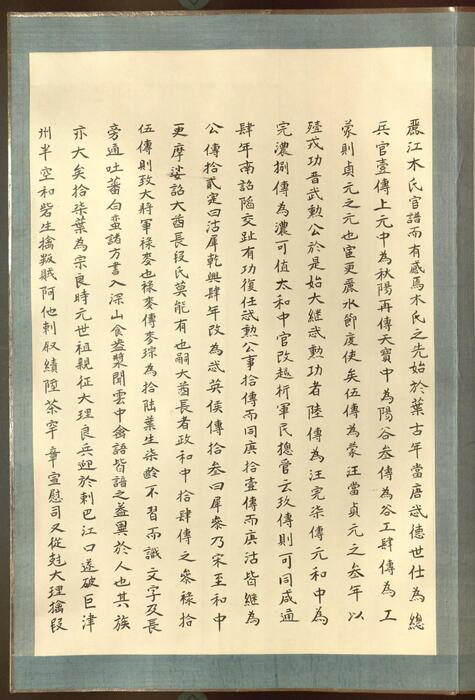 麗江木氏官譜而有感焉木氏之先始於葉古年當唐武德世仕為總
兵官壹傳上元中為秋陽再傳天寶中為陽谷叁傳為谷工肆傳為工
蒙則貞元之元也宦更麗水節度使矣伍傳為蒙汪當貞元之叁年以
殪戎功晉武勲公於是始大継武勲功者陸傳為汪完柒傳元和中為
完濃捌傳為濃可值太和中官改越析軍民總管云玖傳則可同咸通
肆年南詔陷交趾有功復任武勲公事拾傳而同庚拾壹傳而庚沽皆継為
公傳拾貳定曰沽犀乾興肆年改為武英侯傳拾叁曰犀叅乃宋至和中
更摩娑詔大酋長段氏莫能有也嗣大酋長者政和中拾肆傳之叅祿拾
伍傳則致大將軍祿麥也祿麥傳麥琮為拾陸葉生柒齡不習而識文字及長
旁通吐蕃白蠻諸方書入深山食盎漿聞雲中禽語皆諳之益異於人也其族
亦大矣拾柒葉為宗良時元世祖親征大理良兵迎於剌巴江口遂破巨津
州半空和砦生擒叛賊阿他剌叙績陞茶罕章宣慰司又從尅大理擒段